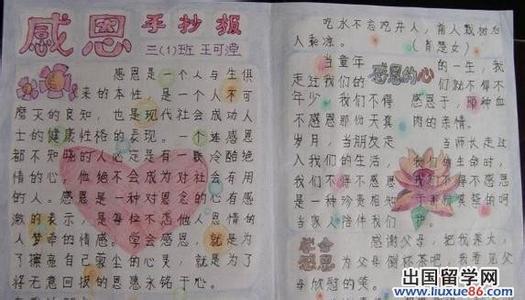 感恩 手抄报
三(1)班 王可滢
感恩是一个人与生俱
来的本性,是一个人不可
磨灭的良知,也是现代社会成功人
士的健康性格的表现。一个连感恩
都不知晓的人必定是有一颗冷酷绝
情的心,他绝不会成为对社会有用
的人。感恩是一种对恩惠的心有感
激的表示,是每位不忘他人恩情的
人梦牵的情感。学会感恩,就是为
了擦亮自己蒙尘的心灵,就是为了
将无意回报的恩惠永铭于心。
吃水不忘挖井人,前人栽树后
人乘凉。
感恩的心
当童年 的一生,我
走过我们的 们就不得不
年少 我们不得 感恩于,那种血
不感恩那份天真 肉的亲情。
岁月,当朋友走 当师长走过
入我们的生活, 我们的生命时,
我们不得不感恩 我们不得不感恩
是一种珍贵相知 于那份
当家人陪伴我们
学会感恩
感谢父母,把我养大,
为父母倒杯茶吧,我看见
父母欣慰的笑。
出国留学网
www.liuxue86.com